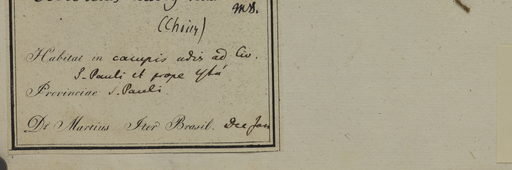 MS.
(Choisy)
Habitat in campis udis ad Civ.
S. Pauli et prope Ytú
Provinciae S. Pauli
Dr Martius Iter Brasil. Dec Jan